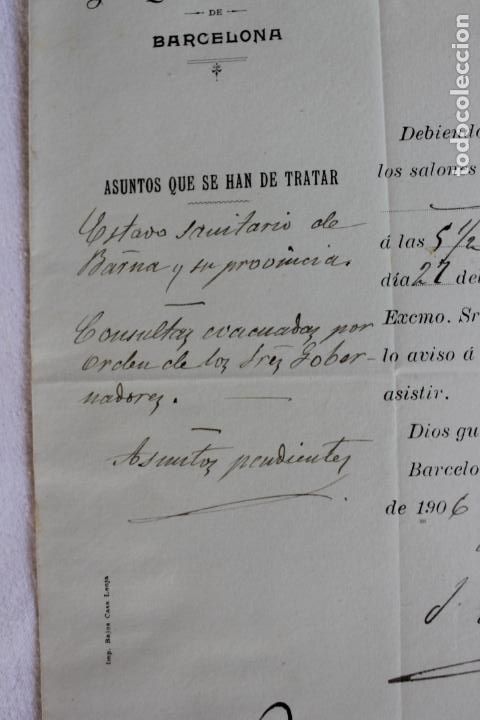 DE
BARCELONA
ASUNTOS QUE SE HAN DE TRATAR
Estado sanitario de
Barna y su provincia.
Consultas evacuadas por
orden de los Sres Gober-
nadores.
Asuntos pendientes
Imp. Bajos Casa Lonja
Debiendo
los salones
á las 5 1/2
día 27 del
Excmo. Sr
lo aviso á
asistir.
Dios gu
Barcelo
de 1906
todocoleccion